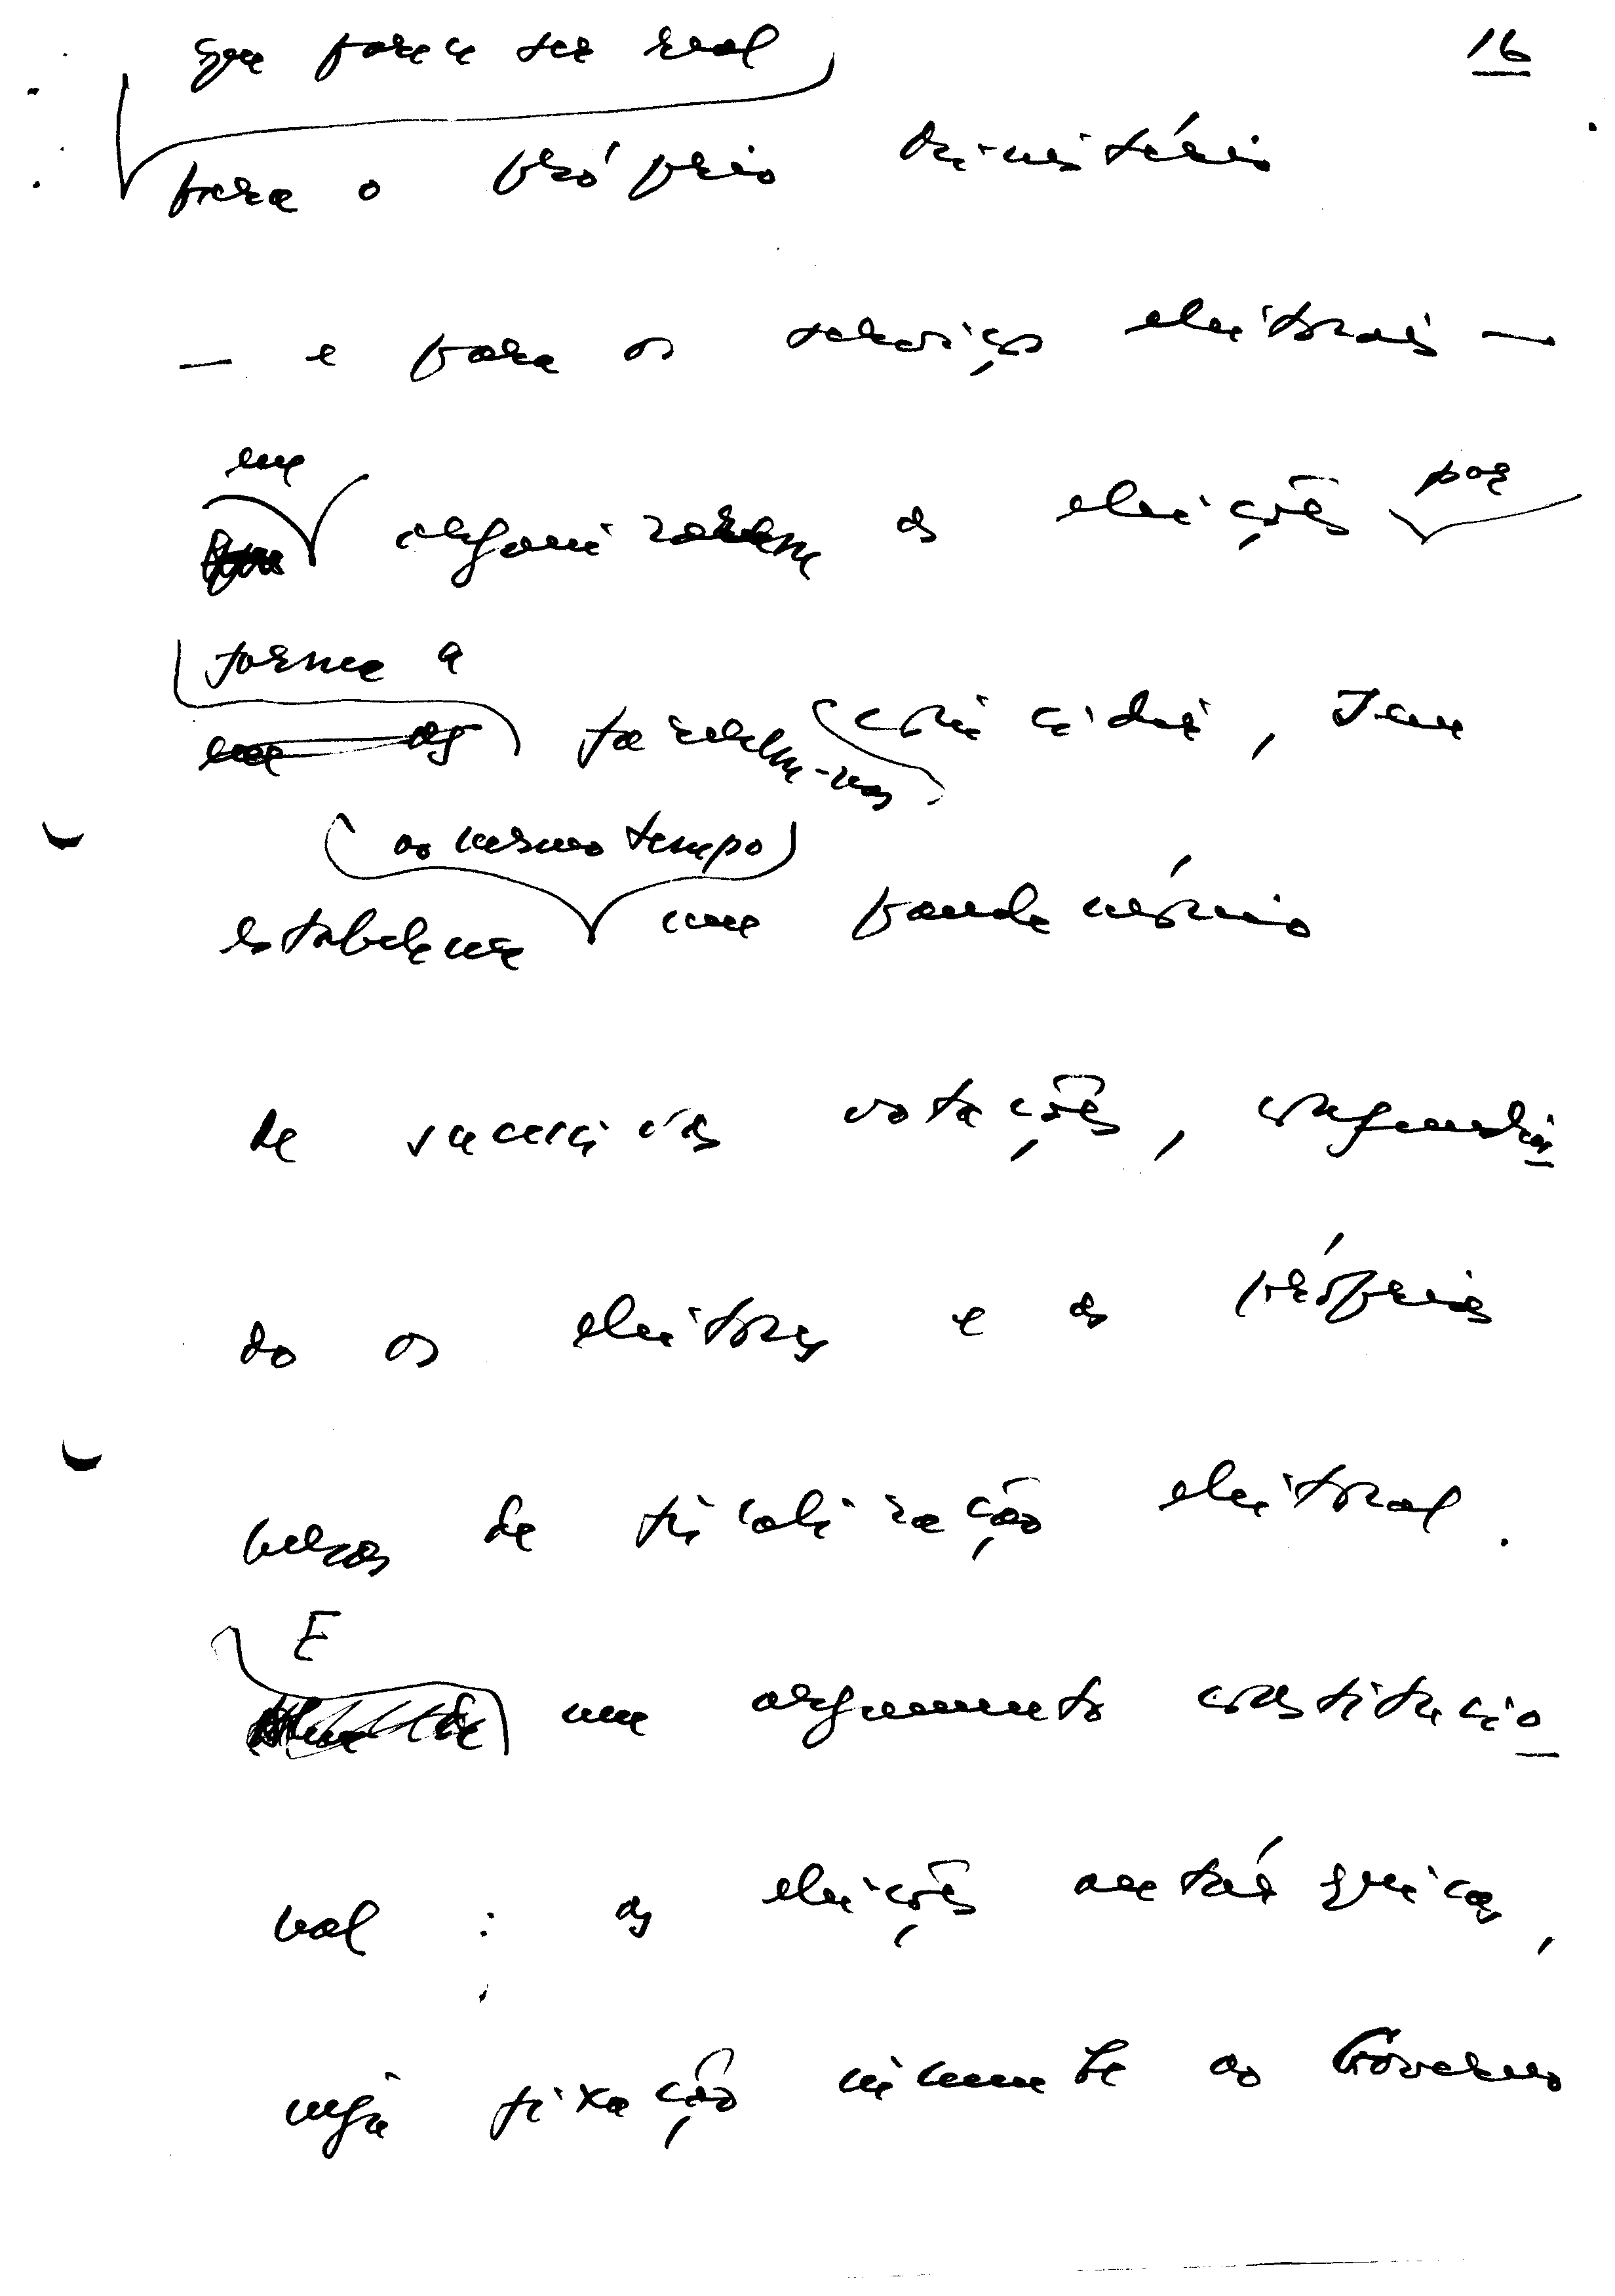 que parece ser real
16
para o próprio Ministério
— e para os serviços eleitorais —
em
organizarem as eleições por
forma a
em as fazerem-nas coincidir, sem
ao mesmo tempo
estabelecer um pandemónio
de sucessivas votações, confundin
do os eleitores e as próprias
mesas de fiscalização eleitoral.
E
um argumento constitucio
nal : as eleições autárquicas,
cuja fixação incumbe ao Governo